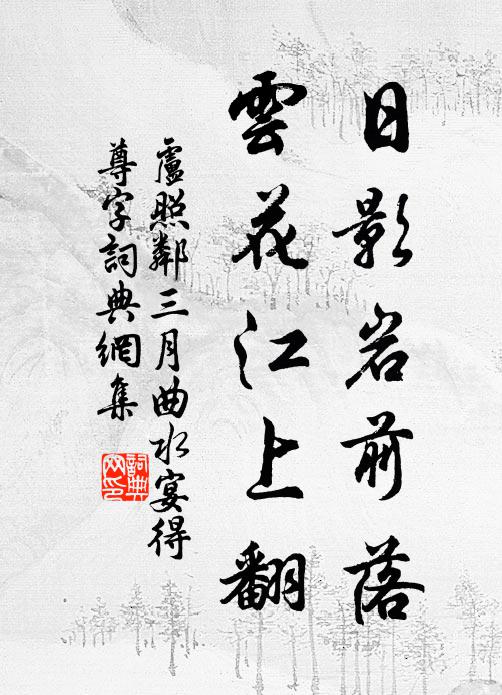 日影岩前落
雲花江上翻
盧照鄰三月曲水宴得
尊字詞典網集
詞典
网印